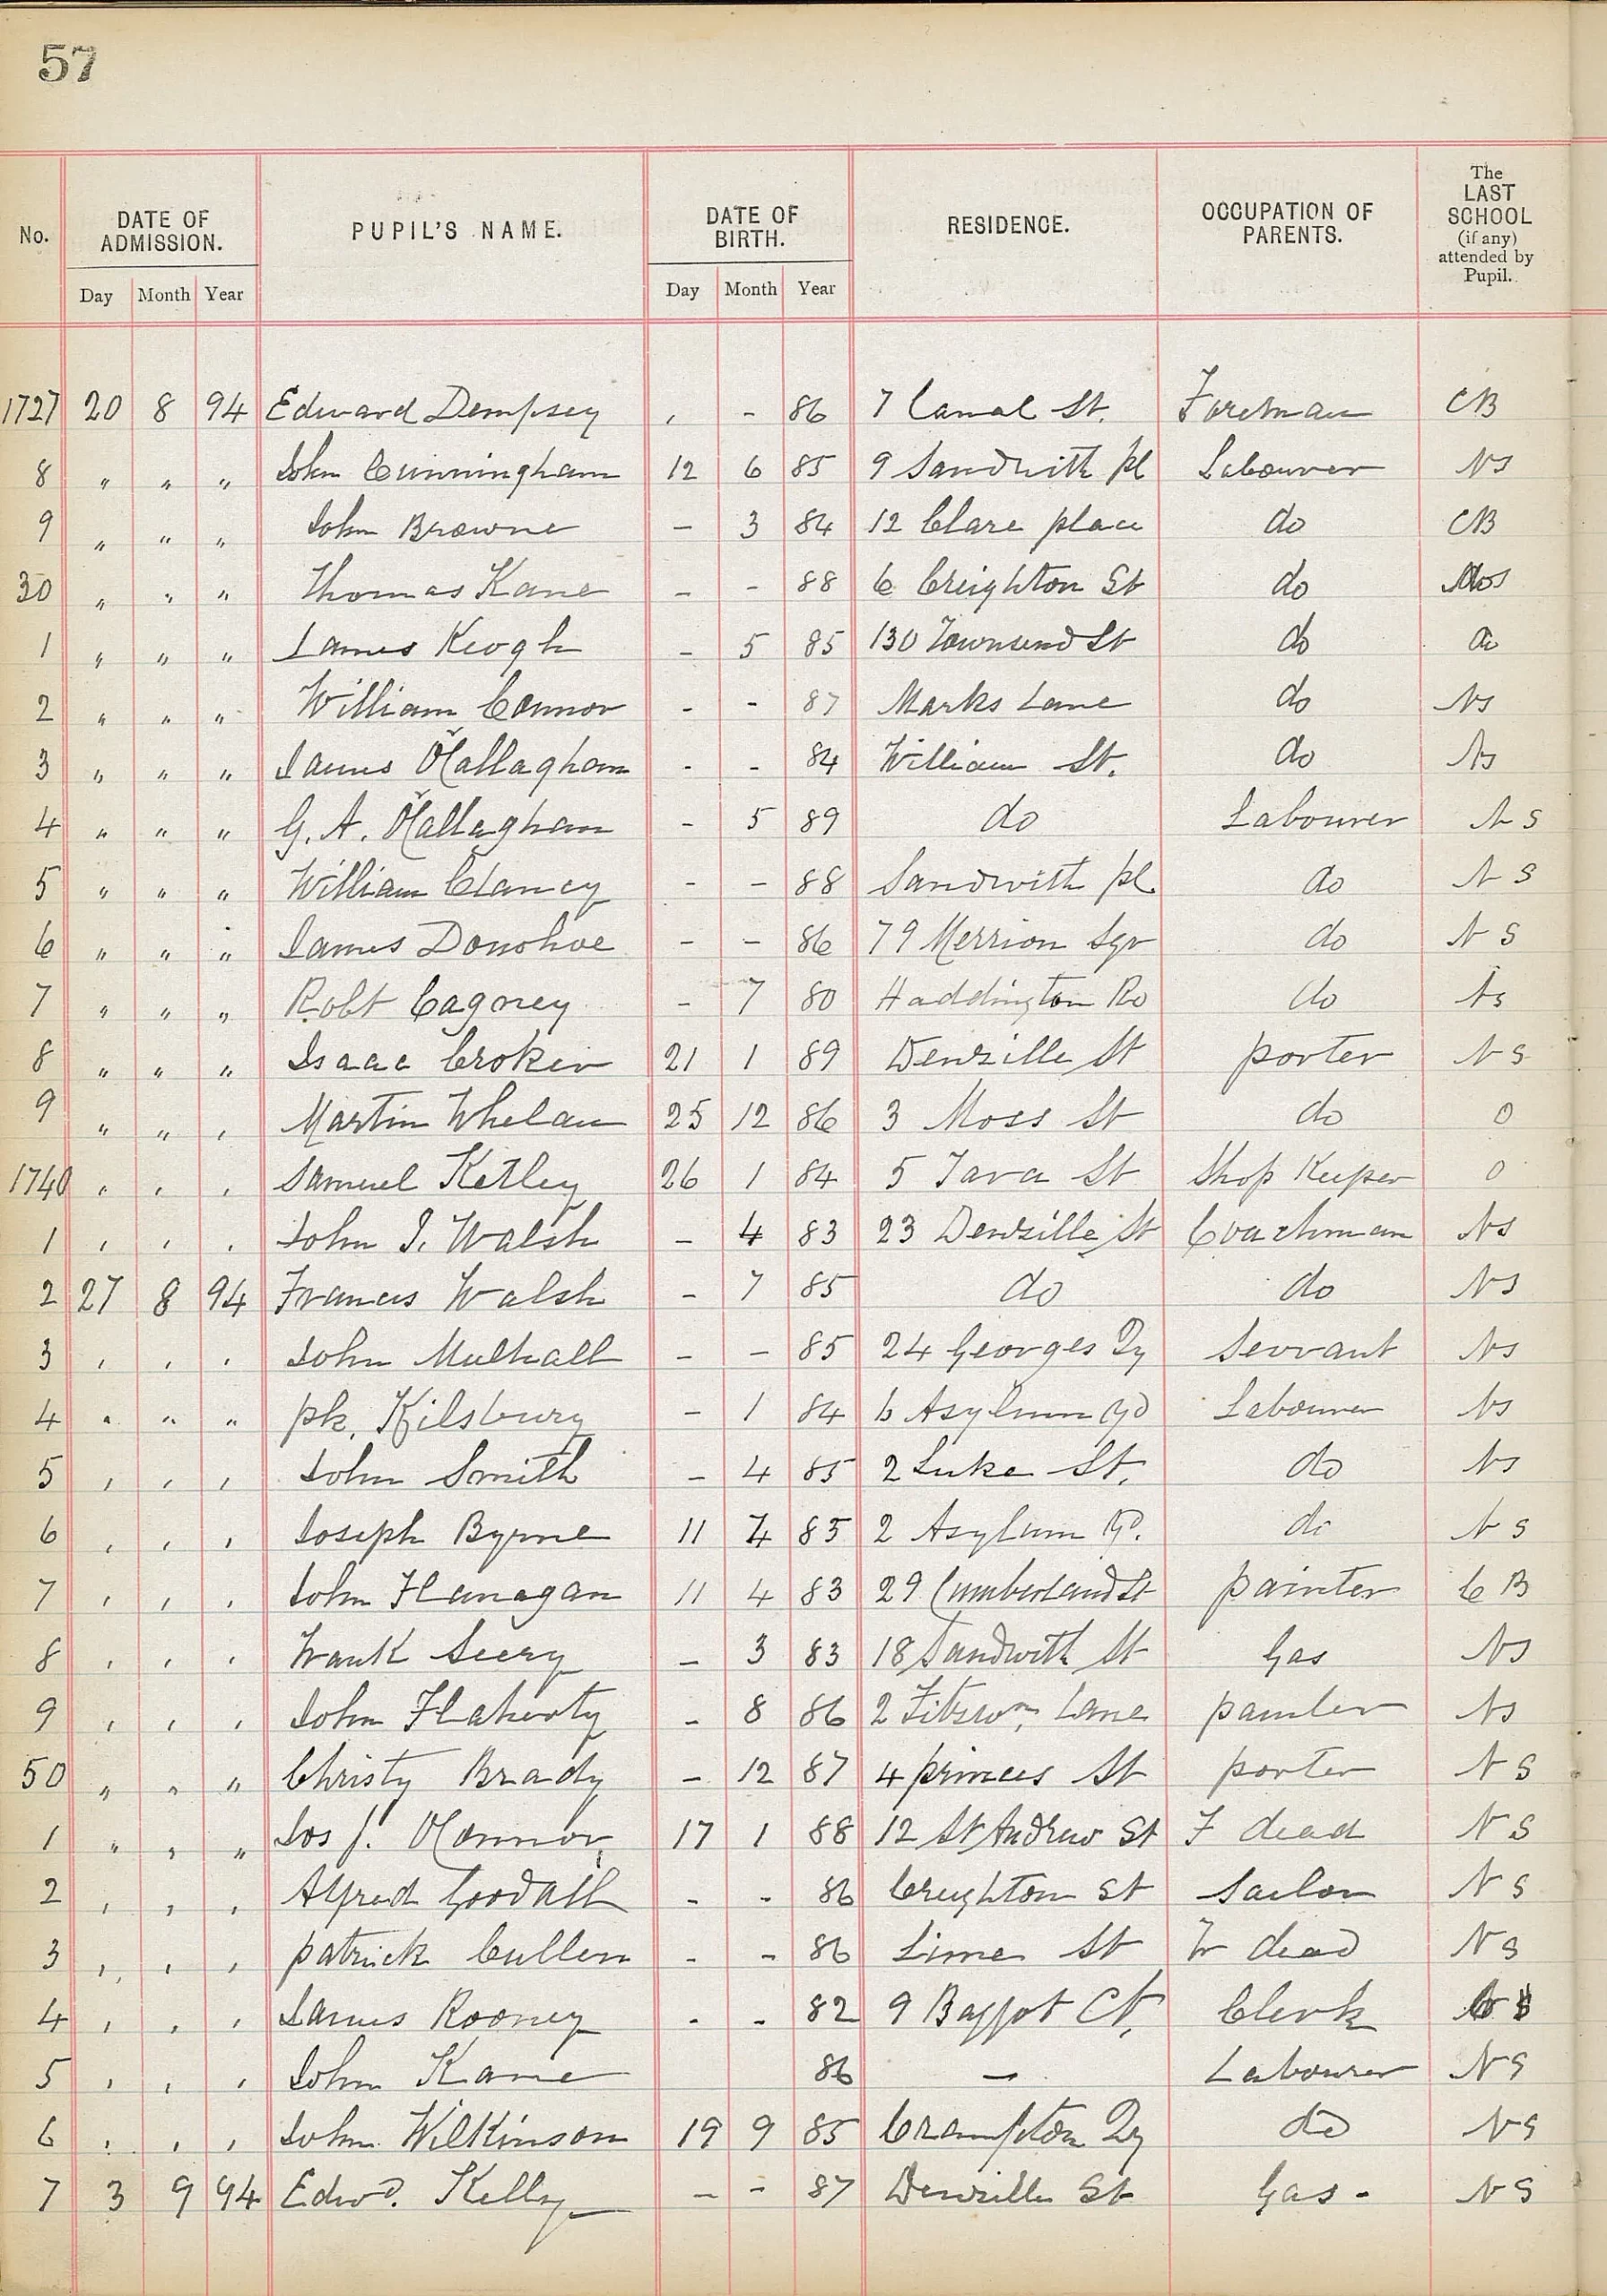 57
No. DATE OF ADMISSION. PUPIL'S NAME. DATE OF BIRTH. RESIDENCE. OCCUPATION OF PARENTS. The LAST SCHOOL (if any) attended by Pupil.
Day Month Year Day Month Year
1727 20 8 94 Edward Dempsey , - 86 7 Canal St. Foreman CB
8 " " " John Cunningham 12 6 85 9 Sandwith pl Labourer NS
9 " " " John Browne - 3 84 12 Clare place do CB
30 " " " Thomas Kane - - 88 6 Creighton St do
1 " " " James Keogh - 5 85 130 Townsend St do do
2 " " " William Connor - - 87 Marks Lane do NS
3 " " " James O'Callagham - - 84 William St. do NS
4 " " " G. A. O'Callagham - 5 89 do Labourer N S
5 " " " William Clancy - - 88 Sandwith pl. do N S
6 " " " James Donohoe - - 86 79 Merrion Sqr do N S
7 " " " Robt Cagney - 7 80 Haddington Rd do NS
8 " " " Isaac Croker 21 1 89 Denzille St porter N S
9 " " , Martin Whelan 25 12 86 3 Moss St do 0
1740 , , , Samuel Ketley 26 1 84 5 Tara St Shop Keeper 0
1 , , , John J. Walsh - 4 83 23 Denzille St Coachman NS
2 27 8 94 Francis Walsh - 7 85 do do NS
3 , , , John Mulhall - - 85 24 Georges Qy Servant NS
4 " " " pk. Kilsbury - 1 84 6 Asylum Yd Labourer NS
5 , , , John Smith - 4 85 2 Luke St. do NS
6 , , , Joseph Byrne 11 4 85 2 Asylum Yd. do N S
7 , , , John Flanagan 11 4 83 29 Cumberland St painter C B
8 , , , Frank Seery - 3 83 18 Sandwith St Gas NS
9 , , , John Flaherty - 8 86 2 Fitzwm Lane painter NS
50 " " " Christy Brady - 12 87 4 princes St porter N S
1 " , " Jos J. O'Connor 17 1 88 12 St Andrew St F dead N S
2 , , , Alfred Goodall - - 86 Creighton St Sailor N S
3 , , , patrick Cullen - - 86 Lime St Fr dead N S
4 , , , James Rooney - - 82 9 Baggot Ct. Clerk
5 , , , John Kane 86 - Labourer N S
6 , , , John Wilkinson 19 9 85 Crampton Qy do N S
7 3 9 94 Edwd. Kelly - - 87 Denzille St Gas - N S